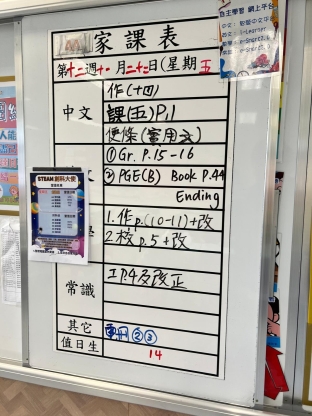 家課表
第十二週十一月二十二日(星期五
中文
作(十四)
課(五)P.1
便條(實用文)
文
①Gr. P.15-16
②PGE(B) Book P.44
Ending
學
1.作p.(10-11)+改
2.校p.5+改
常識
工P.4及改正
其它
②③
值日生
14
STEAM創科大使
自主學習 網上平台